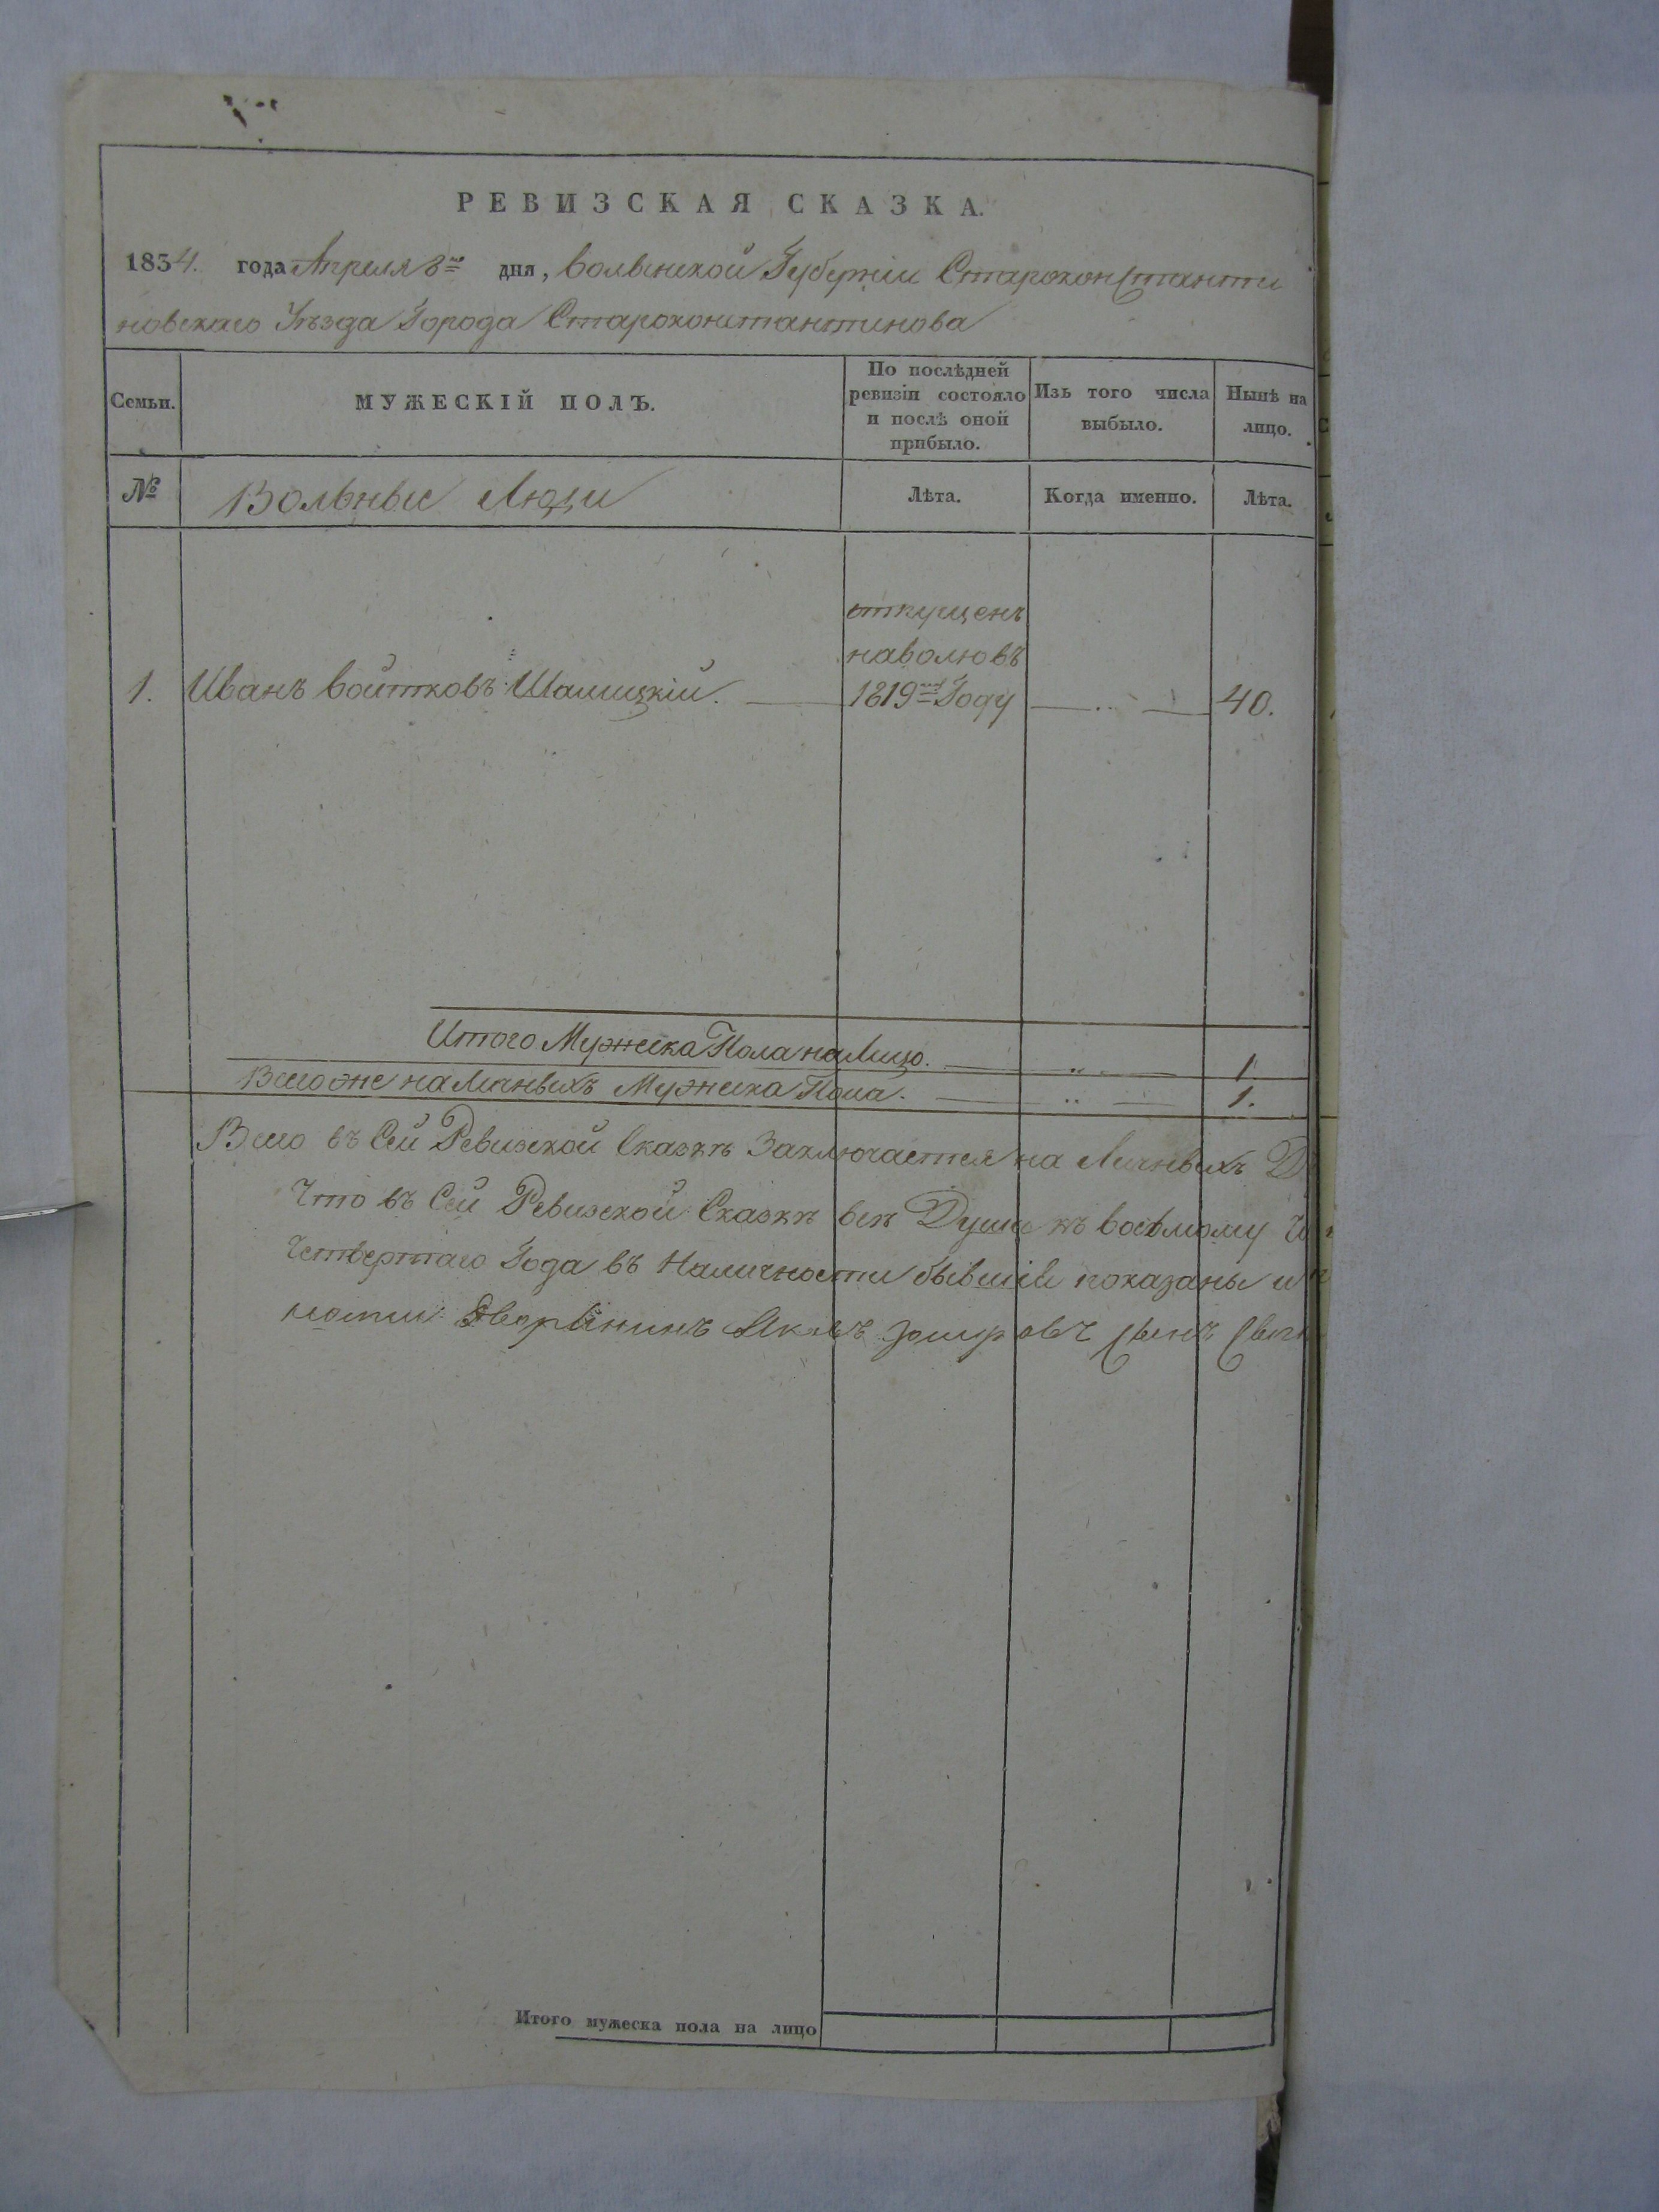 РЕВИЗСКАЯ СКАЗКА.
1834. года Апреля 8го дня, Волынской Губернiи Староконстанти
новскаго Уѣзда Города Староконстантинова
Семьи.
МУЖЕСКІЙ ПОЛЪ.
По послѣдней ревизіи состояло и послѣ оной прибыло.
Изъ того числа выбыло.
Нынѣ на лицо.
№
Вольные Люди
Лѣта.
Когда именно.
Лѣта.
1. Иванъ Войтковъ
отпущенъ
наволювъ
1819мъ Году
40.
Итого Мужеска Пола наЛицо. 1
Всего же наЛичныхъ Мужеска Пола. 1.
Всего въ Сей Ревизской Сказкѣ Заключается на Личныхъ
Что въ Сей Ревизской Сказкѣ всѣ Души къ восьмому
Четвертаго Года въ Наличности бывшiе показаны и
Дворянинъ Сынъ
Итого мужеска пола на лицо